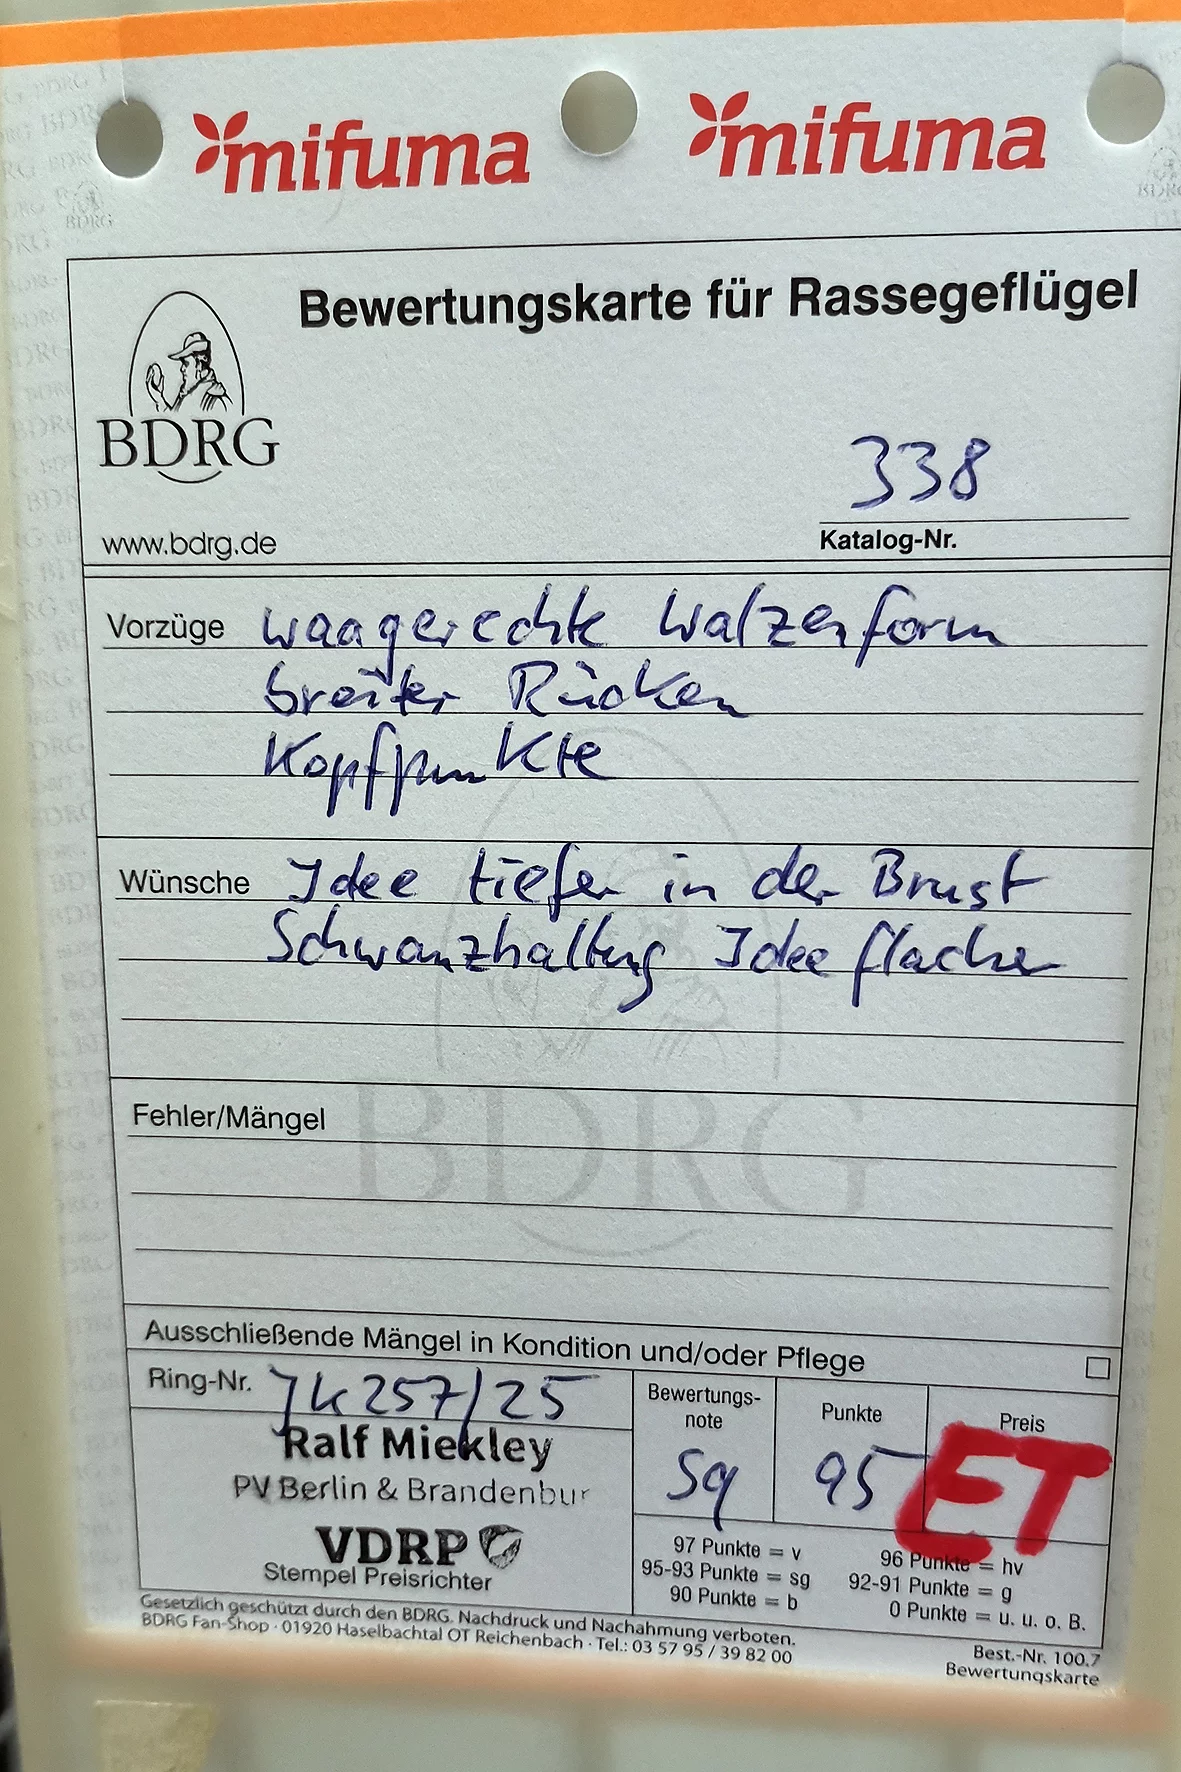 mifuma mifuma
Bewertungskarte für Rassegeflügel
BDRG
www.bdrg.de
338
Katalog-Nr.
Vorzüge waagerechte Walzenform
breiter Rücken
Kopfpunkte
Wünsche Idee tiefer in der Brust
Schwanzhaltung Idee flacher
BDRG
Fehler/Mängel
Ausschließende Mängel in Kondition und/oder Pflege
Ring-Nr. JK257/25
Bewertungs-
note
Sg
Punkte
95
Preis
ET
Ralf Miekley
PV Berlin & Brandenbur
VDRP
Stempel Preisrichter
97 Punkte = v 96 Punkte = hv
95-93 Punkte = sg 92-91 Punkte = g
90 Punkte = b 0 Punkte = u. u. o. B.
Gesetzlich geschützt durch den BDRG. Nachdruck und Nachahmung verboten.
BDRG Fan-Shop · 01920 Haselbachtal OT Reichenbach · Tel.: 03 57 95 / 39 82 00
Best.-Nr. 100.7
Bewertungskarte